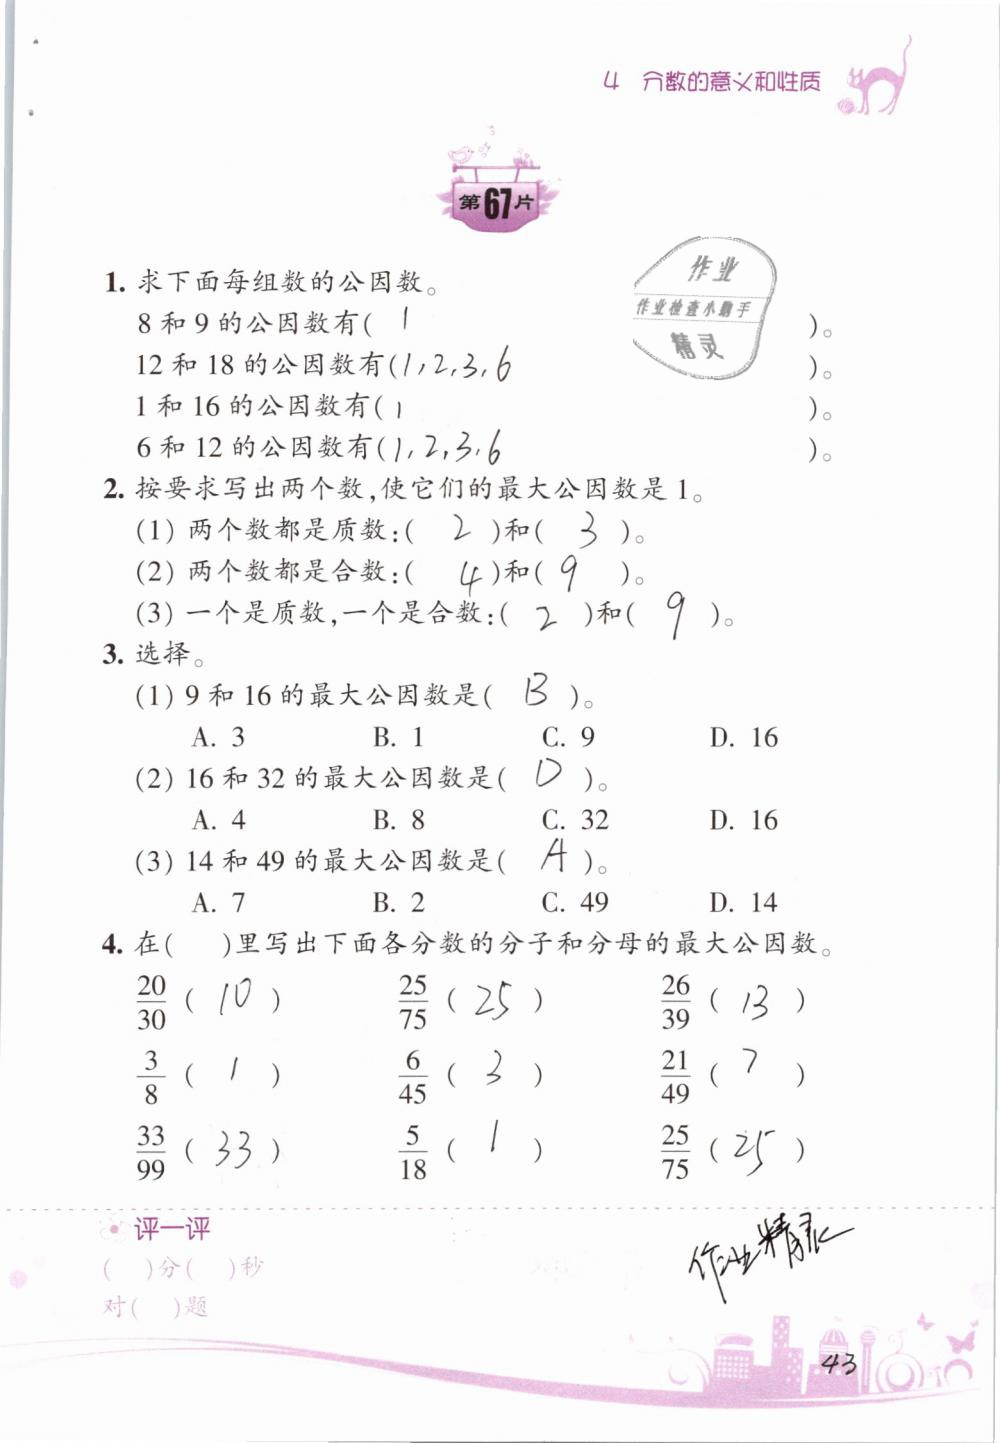 4 分数的意义和性质
第67片
作业
作业检查小助手
精灵
1. 求下面每组数的公因数。
8和9的公因数有( 1 )。
12和18的公因数有(1,2,3,6 )。
1和16的公因数有(1 )。
6和12的公因数有(1,2,3,6 )。
2. 按要求写出两个数,使它们的最大公因数是1。
(1) 两个数都是质数:( 2 )和( 3 )。
(2) 两个数都是合数:( 4 )和( 9 )。
(3) 一个是质数,一个是合数:( 2 )和( 9 )。
3. 选择。
(1) 9和16的最大公因数是( B )。
A. 3 B. 1 C. 9 D. 16
(2) 16和32的最大公因数是( D )。
A. 4 B. 8 C. 32 D. 16
(3) 14和49的最大公因数是( A )。
A. 7 B. 2 C. 49 D. 14
4. 在( )里写出下面各分数的分子和分母的最大公因数。
20/30 ( 10 ) 25/75 ( 25 ) 26/39 ( 13 )
3/8 ( 1 ) 6/45 ( 3 ) 21/49 ( 7 )
33/99 ( 33 ) 5/18 ( 1 ) 25/75 ( 25 )
评一评
( )分( )秒
对( )题
作业精灵
43